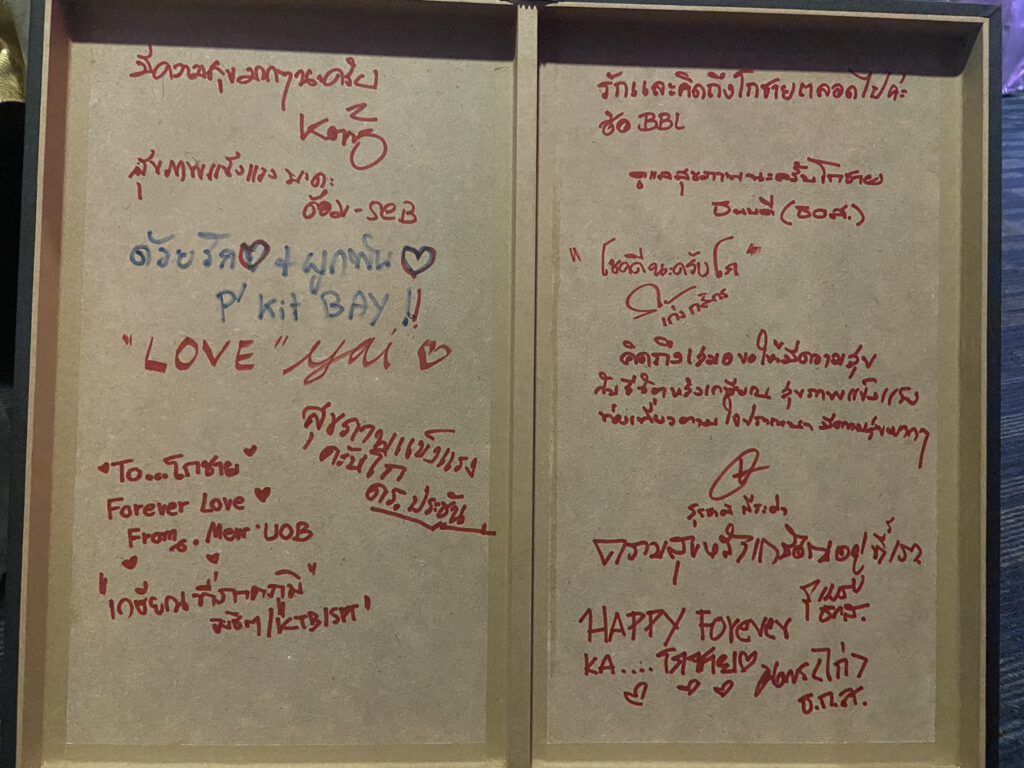 มีความสุขมากๆนะครับ
Kong
สุขภาพแข็งแรง นะคะ
อ้อม-SCB
ด้วยรัก + ผูกพัน
P' Kit BAY !!
"LOVE" yai
สุขภาพแข็งแรง
ครับโก
ดร. ประชัน
"To...โกชาย"
Forever Love
From.. Meaw UOB
"เกษียณ ที่ภาคภูมิ"
/KTB/
รักและคิดถึงโกชายตลอดไปค่ะ
ซ้อ BBL
ดูแลสุขภาพนะครับโกชาย
ธนบดี (ธอส.)
"โชคดีนะครับโก"
คิดถึงเสมอ ขอให้มีความสุข
กับชีวิตหลังเกษียณ สุขภาพแข็งแรง
ท่องเที่ยวตามใจปรารถนา มีความสุขมากๆ
ความสุขหลังเกษียณอยู่ที่เรา
ธกส.
HAPPY Forever
KA.... โกชาย
ธ.ก.ส.